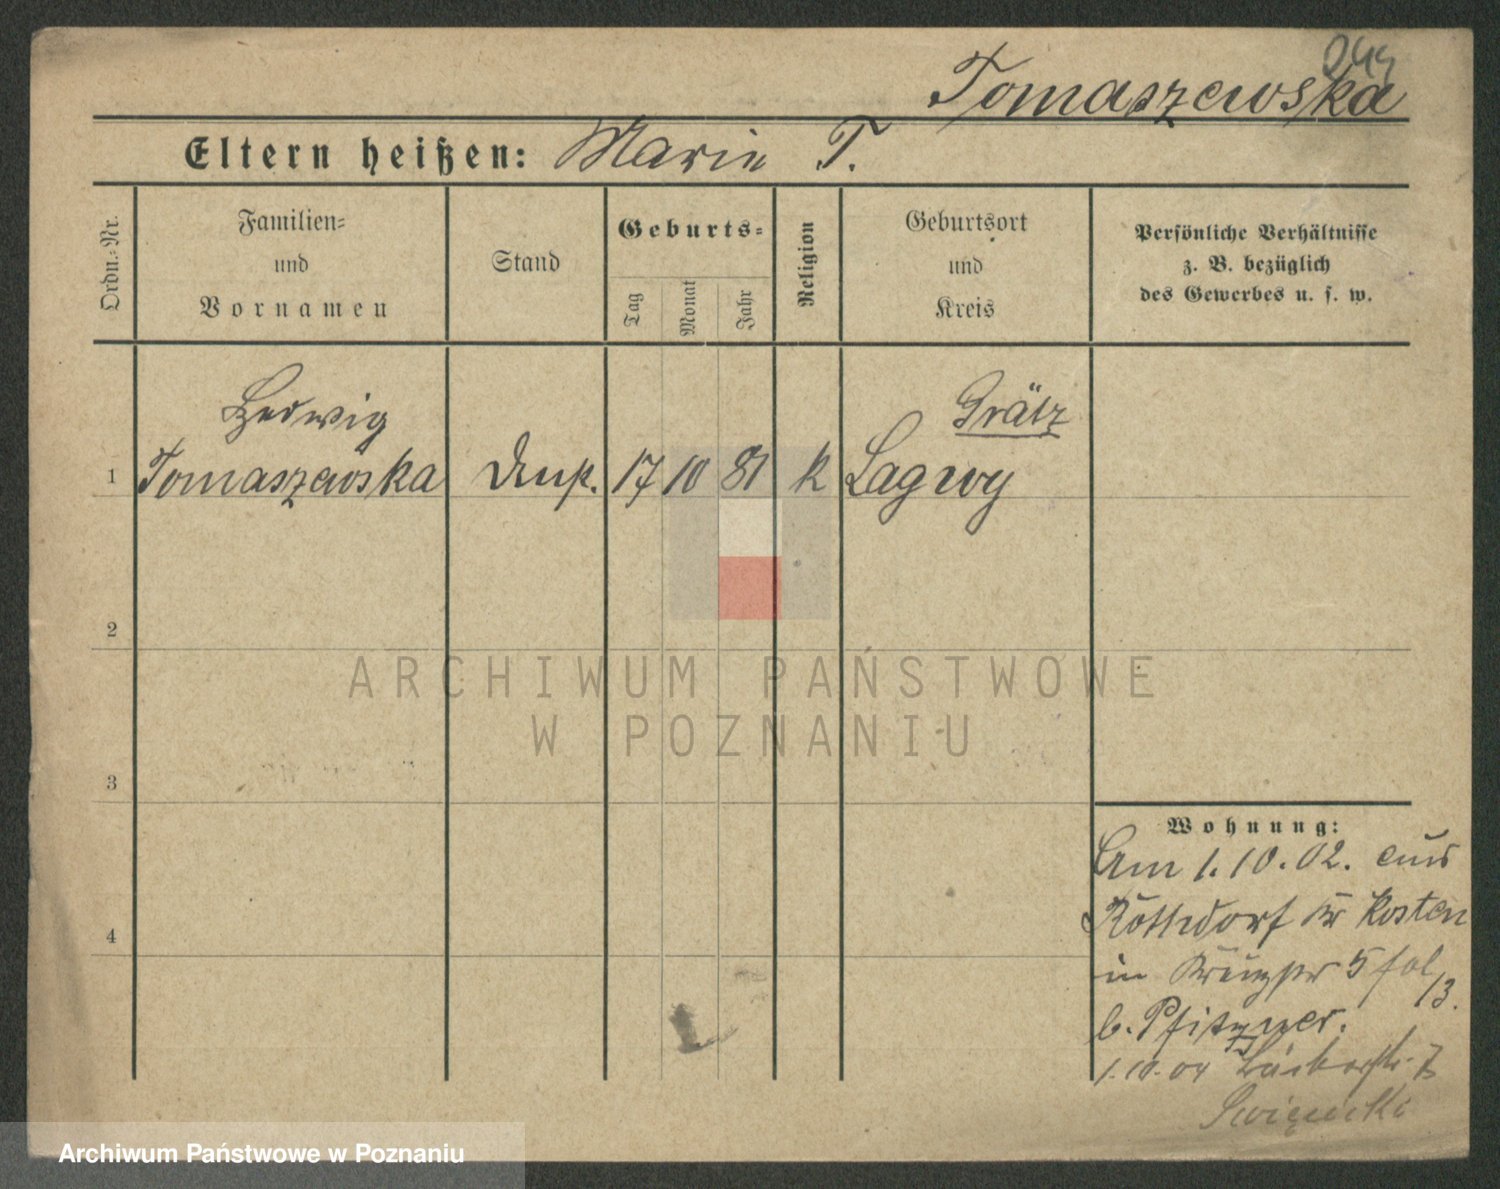 Tomaszewska
Eltern heißen: Marie T.
Ordn.-Nr.
Familien-
und
Vornamen
Stand
Geburts-
Tag
Monat
Jahr
Religion
Geburtsort
und
Kreis
Persönliche Verhältnisse
z. B. bezüglich
des Gewerbes u. s. w.
Hedwig
Grätz
1 Tomaszewska 17 10 81 k Lagwy
2
ARCHIWUM PAŃSTWOWE
W POZNANIU
3
Wohnung:
Am 1.10.02. aus
4
Kr Kosten
in 5
13.
b. Pfitzner.
1.10.04
Archiwum Państwowe w Poznaniu